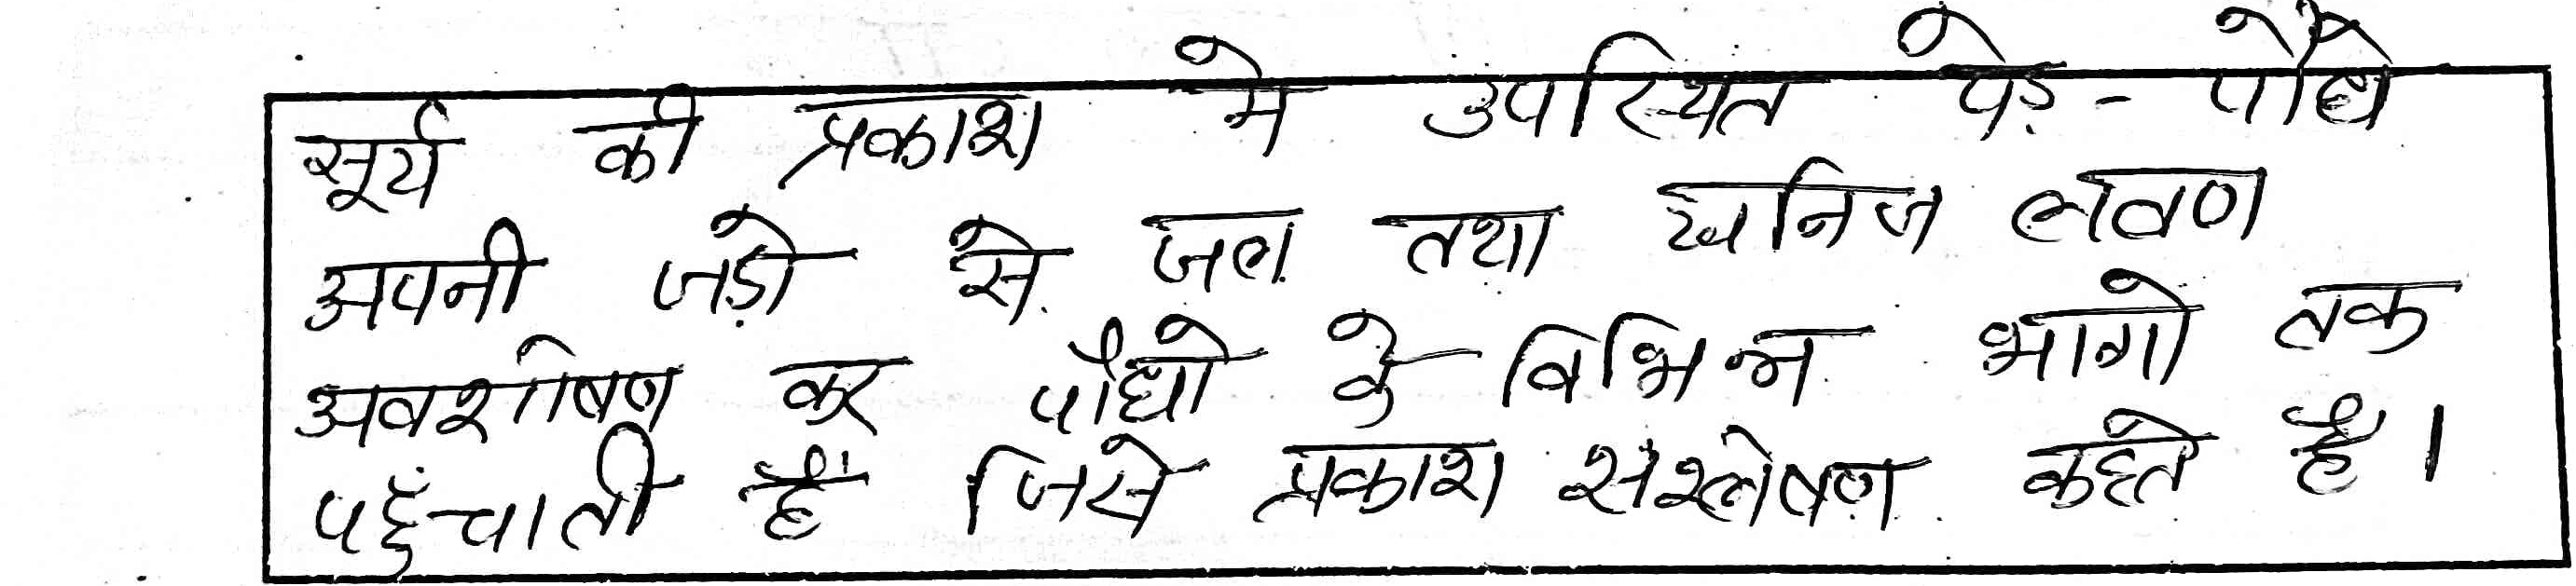 सूर्य की प्रकाश मे उपस्थित पेड़ - पौधे
अपनी जड़ो से जल तथा खनिज लवण
अवशोषण कर पौधो के विभिन्न भागो तक
पहुँचाती हैं जिसे प्रकाश संश्लेषण कहते है।